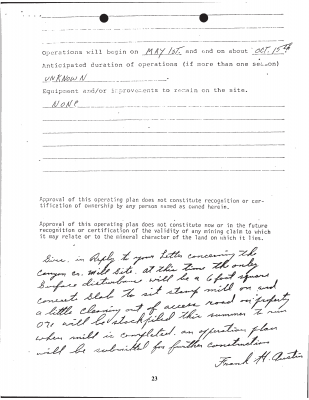 Operations will begin on MAY 1st. and end on about OCT. 15th
Anticipated duration of operations (if more than one season)
UNKNOWN
Equipment and/or improvements to remain on the site.
NONE
Approval of this operating plan does not constitute recognition or cer-
tification of ownership by any person named as owned herein.
Approval of this operating plan does not constitute now or in the future
recognition or certification of the validity of any mining claim to which
it may relate or to the mineral character of the land on which it lies.
Sirs. in Reply to your letter concerning the
Canyon cr. mill site. at this time the only
Surface disturbance will be a 6 foot square
concret slab to sit stamp mill on and
a little cleaning out of access road on property
ore will be stockpiled this summer to run
when mill is completed. an operation plan
will be submitted for further construction
Frank H. Austin
23